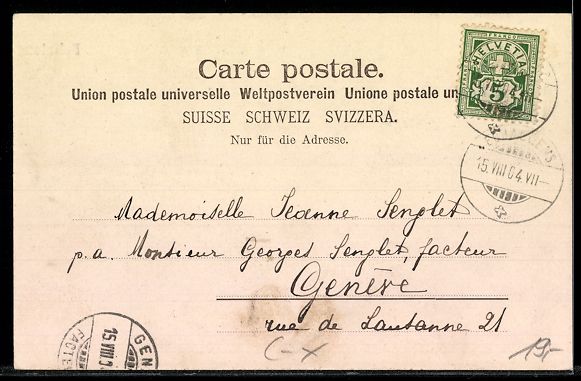 Carte postale.
Union postale universelle Weltpostverein Unione postale un
SUISSE SCHWEIZ SVIZZERA.
Nur für die Adresse.
FRANCO
HELVETIA
5
15.VIII 04.VII—
Mademoiselle Jeanne Senglet
p. a. Monsieur Georges Senglet, facteur
Genève
rue de Lausanne 21
GEN
15 VIII
FACTE
C-x
19.-